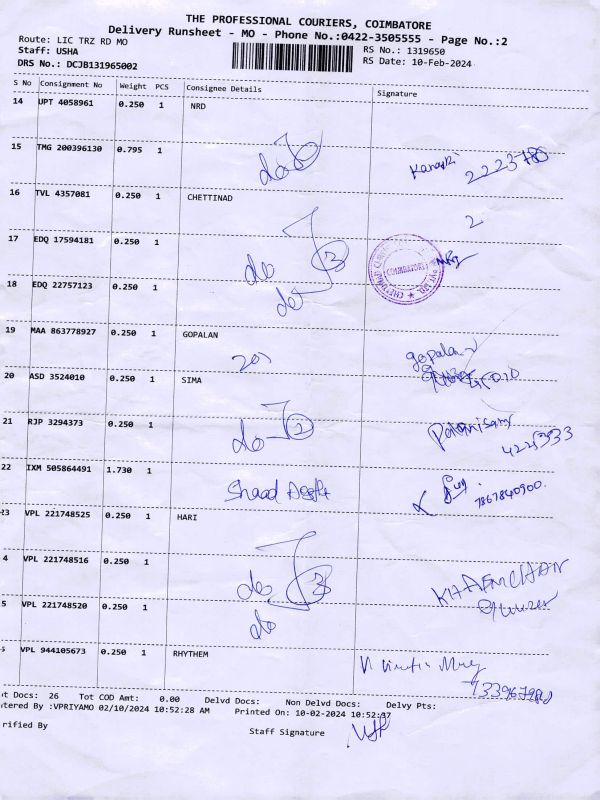 THE PROFESSIONAL COURIERS, COIMBATORE
Delivery Runsheet - MO - Phone No.:0422-3505555 - Page No.:2
Route: LIC TRZ RD MO
Staff: USHA
RS No.: 1319650
DRS No.: DCJB131965002
RS Date: 10-Feb-2024
S No Consignment No Weight PCS Consignee Details Signature
14 UPT 4058961 0.250 1 NRD
15 TMG 200396130 0.795 1
do 2
2223780
16 TVL 4357081 0.250 1 CHETTINAD
2
17 EDQ 17594181 0.250 1
do 3
COIMBATORE
18 EDQ 22757123 0.250 1
do
19 MAA 863778927 0.250 1 GOPALAN
gopalan
20 ASD 3524010 0.250 1 SIMA
21 RJP 3294373 0.250 1
do 2
Palanisamy
22 IXM 505864491 1.730 1
Shaad
7867840900
23 VPL 221748525 0.250 1 HARI
4 VPL 221748516 0.250 1
do 3
5 VPL 221748520 0.250 1
do
VPL 944105673 0.250 1 RHYTHEM
t Docs: 26 Tot COD Amt: 0.00 Delvd Docs: Non Delvd Docs: Delvy Pts:
tered By :VPRIYAMO 02/10/2024 10:52:28 AM Printed On: 10-02-2024 10:52:37
rified By
Staff Signature